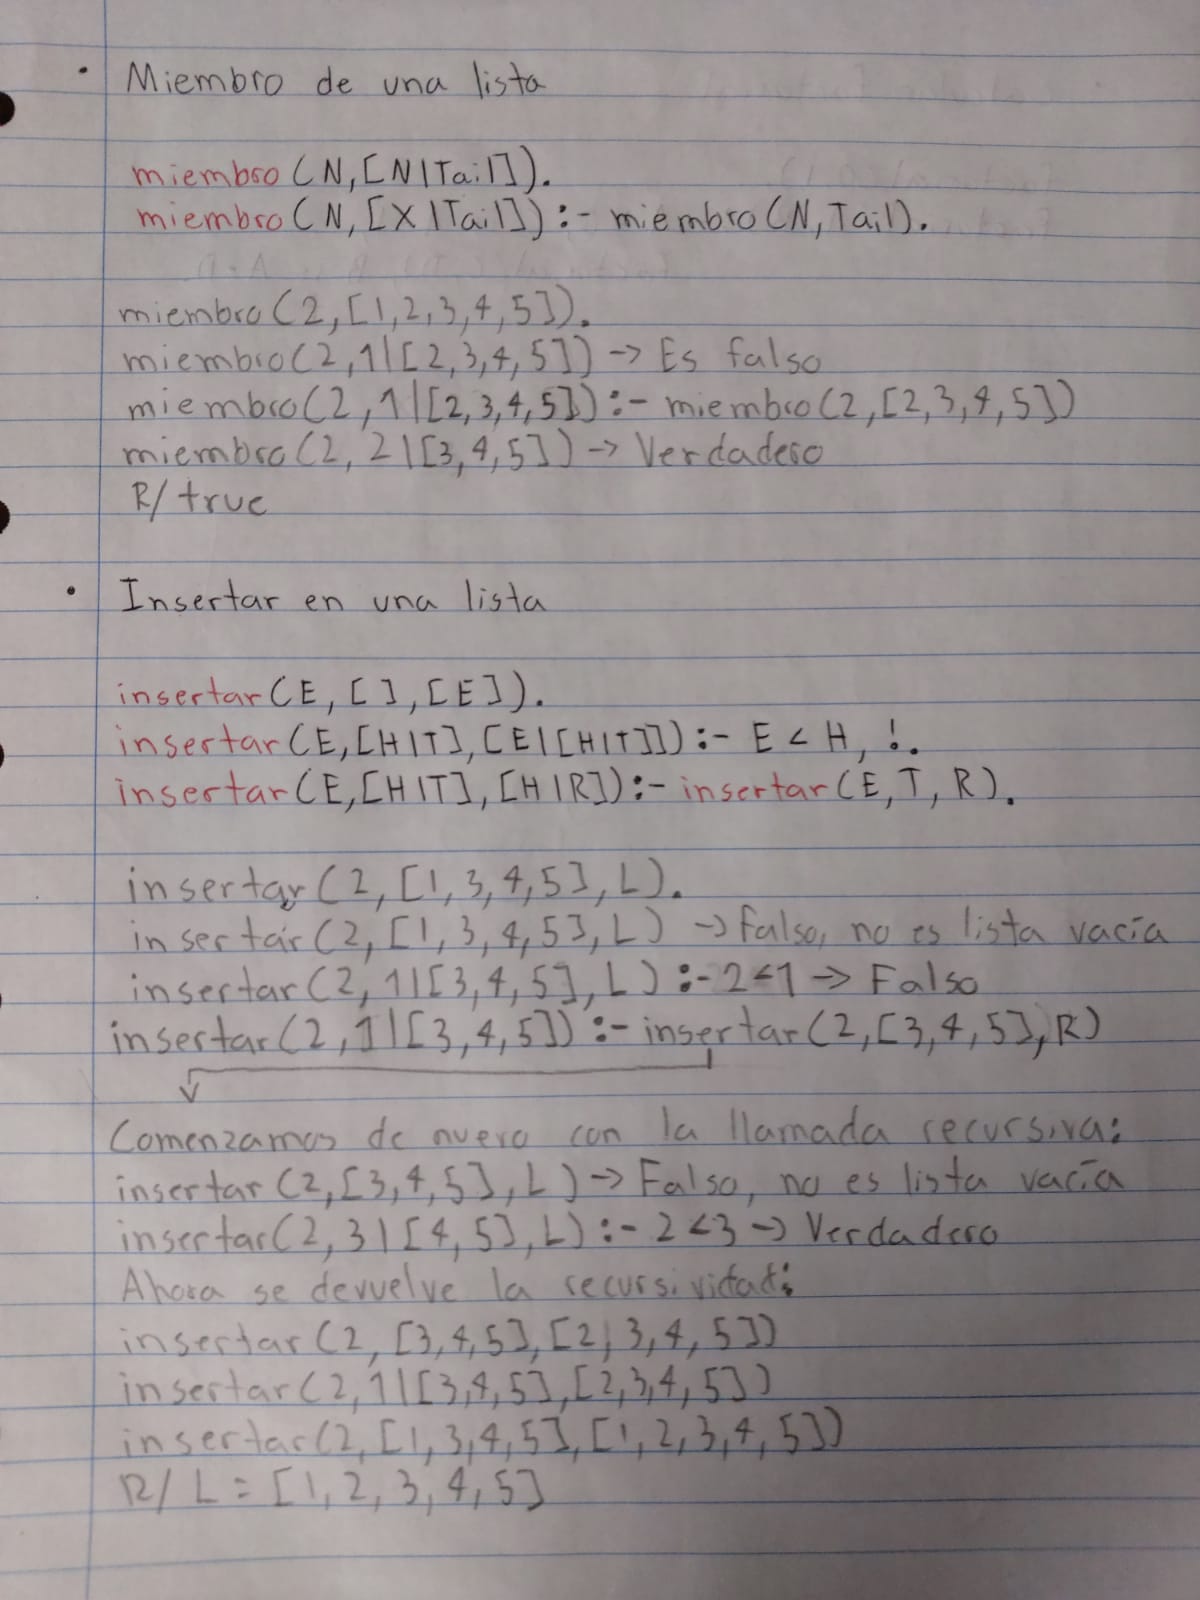 • Miembro de una lista
miembro(N,[N|Tail]).
miembro(N,[X|Tail]):- miembro(N,Tail).
miembro(2,[1,2,3,4,5]).
miembro(2,1|[2,3,4,5]) -> Es falso
miembro(2,1|[2,3,4,5]):- miembro(2,[2,3,4,5])
miembro(2,2|[3,4,5]) -> Verdadero
R/ true
• Insertar en una lista
insertar(E,[],[E]).
insertar(E,[H|T],[E|[H|T]]):- E<H, !.
insertar(E,[H|T],[H|R]):- insertar(E,T,R).
insertar(2,[1,3,4,5],L).
insertar(2,[1,3,4,5],L) -> Falso, no es lista vacía
insertar(2,1|[3,4,5],L):- 2<1 -> Falso
insertar(2,1|[3,4,5]):- insertar(2,[3,4,5],R)
Comenzamos de nuevo con la llamada recursiva:
insertar(2,[3,4,5],L) -> Falso, no es lista vacía
insertar(2,3|[4,5],L):- 2<3 -> Verdadero
Ahora se devuelve la recursividad:
insertar(2,[3,4,5],[2|3,4,5])
insertar(2,1|[3,4,5],[2,3,4,5])
insertar(2,[1,3,4,5],[1,2,3,4,5])
R/ L=[1,2,3,4,5]